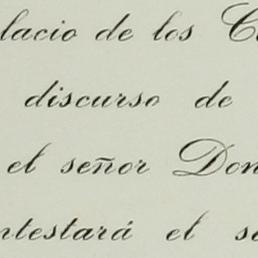 lacio de los C
discurso de
el señor Don
ntestará el se